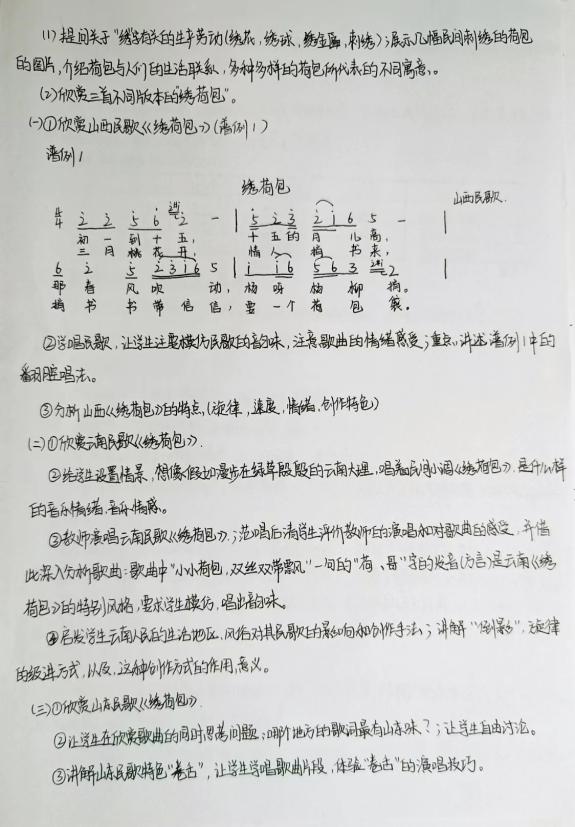 (1) 提问关于"绣"字有关的生产劳动(绣花，绣球，绣金匾，刺绣)；展示几幅民间刺绣的荷包
的图片，介绍荷包与人们的生活联系，多种多样的荷包所代表的不同寓意。
(2)欣赏三首不同版本的"绣荷包"。
(一)①欣赏山西民歌《绣荷包》(谱例1)
谱例1
绣荷包
山西民歌.
4/4 2 2 5 6 2 - | 5 2 3 2 1 6 5 - |
初 一 到 十 五， 十 五 的 月 儿 高，
三 月 桃 花 开， 情 人 捎 书 来，
6 2 5 2 3 1 6 5 | 1 1 6 5 6 3 2 |
那 春 风 吹 动， 杨 呀 杨 柳 梢。
捎 书 书 带 信 信， 要 一 个 荷 包 袋。
②学唱民歌，让学生注意模仿民歌的韵味，注意歌曲的情绪感受；重点讲述谱例1中的
翻腔唱法。
③分析山西《绣荷包》的特点，(旋律，速度，情绪，创作特色)
(二)①欣赏云南民歌《绣荷包》.
②给学生设置情景，想像假如漫步在绿草段段的云南大理，唱着民间小调《绣荷包》，是什么样
的音乐情绪，音乐情感。
③教师演唱云南民歌《绣荷包》；范唱后请学生评价教师的演唱和对歌曲的感受，并借
此深入分析歌曲：歌曲中"小小荷包，双丝双带飘"一句的"荷、哥"字的发音(方言)是云南《绣
荷包》的特别风格，要求学生模仿，唱出韵味。
④启发学生云南人民的生活地区，风俗对其民歌的影响和创作手法；讲解"倒影"，旋律
的级进方式，以及，这种创作方式的作用，意义。
(三)①欣赏山东民歌《绣荷包》.
②让学生在欣赏歌曲的同时思考问题：哪个地方的歌词最有山东味？；让学生自由讨论。
③讲解山东民歌特色"卷舌"，让学生学唱歌曲片段，体验"卷舌"的演唱技巧。